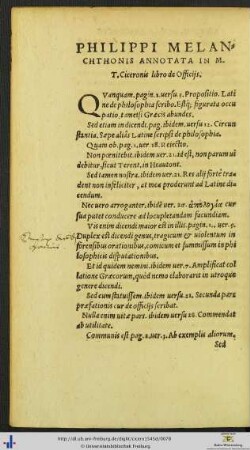 PHILIPPI MELAN
CHTHONIS ANNOTATA IN M.
T. Ciceronis libro de Officijs.
QVanquam. pagin. 1. uersu 5. Propositio. Lati
ne de philosophia scribo. Estq; figurata occu
patio, tametsi Græcis abundes.
Sed etiam in dicendi. pag. ibidem. uersu 12. Circun
stantia. Sæpe aliàs Latine scripsit de philosophia.
Quam ob. pag. 1. uer 18. Illectio.
Non pœnitebit. ibidem. uer. 21. id est, non parum ui
debitur. sicut Terent. in Heautont.
Sed tamen nostra. ibidem uer. 21. Res alij fortè tra
dent non infeliciter, at uoce proderunt ad Latine di
cendum.
Nec uero arroganter. ibid. uer. 20. cur
sua potet conducere ad locupletandam facundiam.
Vis enim dicendi maior est in illis. pagin. 2. uer. 4.
Duplex est dicendi genus, tragicum & uiolentum in
forensibus orationibus, comicum et summissum in phi
losophicis disputationibus.
Et id quidem nemini. ibidem uer. 7. Amplificat col
latione Græcorum, quòd nemo elaborarit in utroque
genere dicendi.
Sed cum statuissem. ibidem uersu 21. Secunda pars
præfationis cur de officijs scribat.
Nulla enim uitæ pars. ibidem uersu 28. Commendat
ab utilitate.
Communis est pag. 2. uer. 3. Ab exemplis aliorum,
Sed
http://dl.ub.uni-freiburg.de/diglit/cicero1545d/0678
© Universitätsbibliothek Freiburg